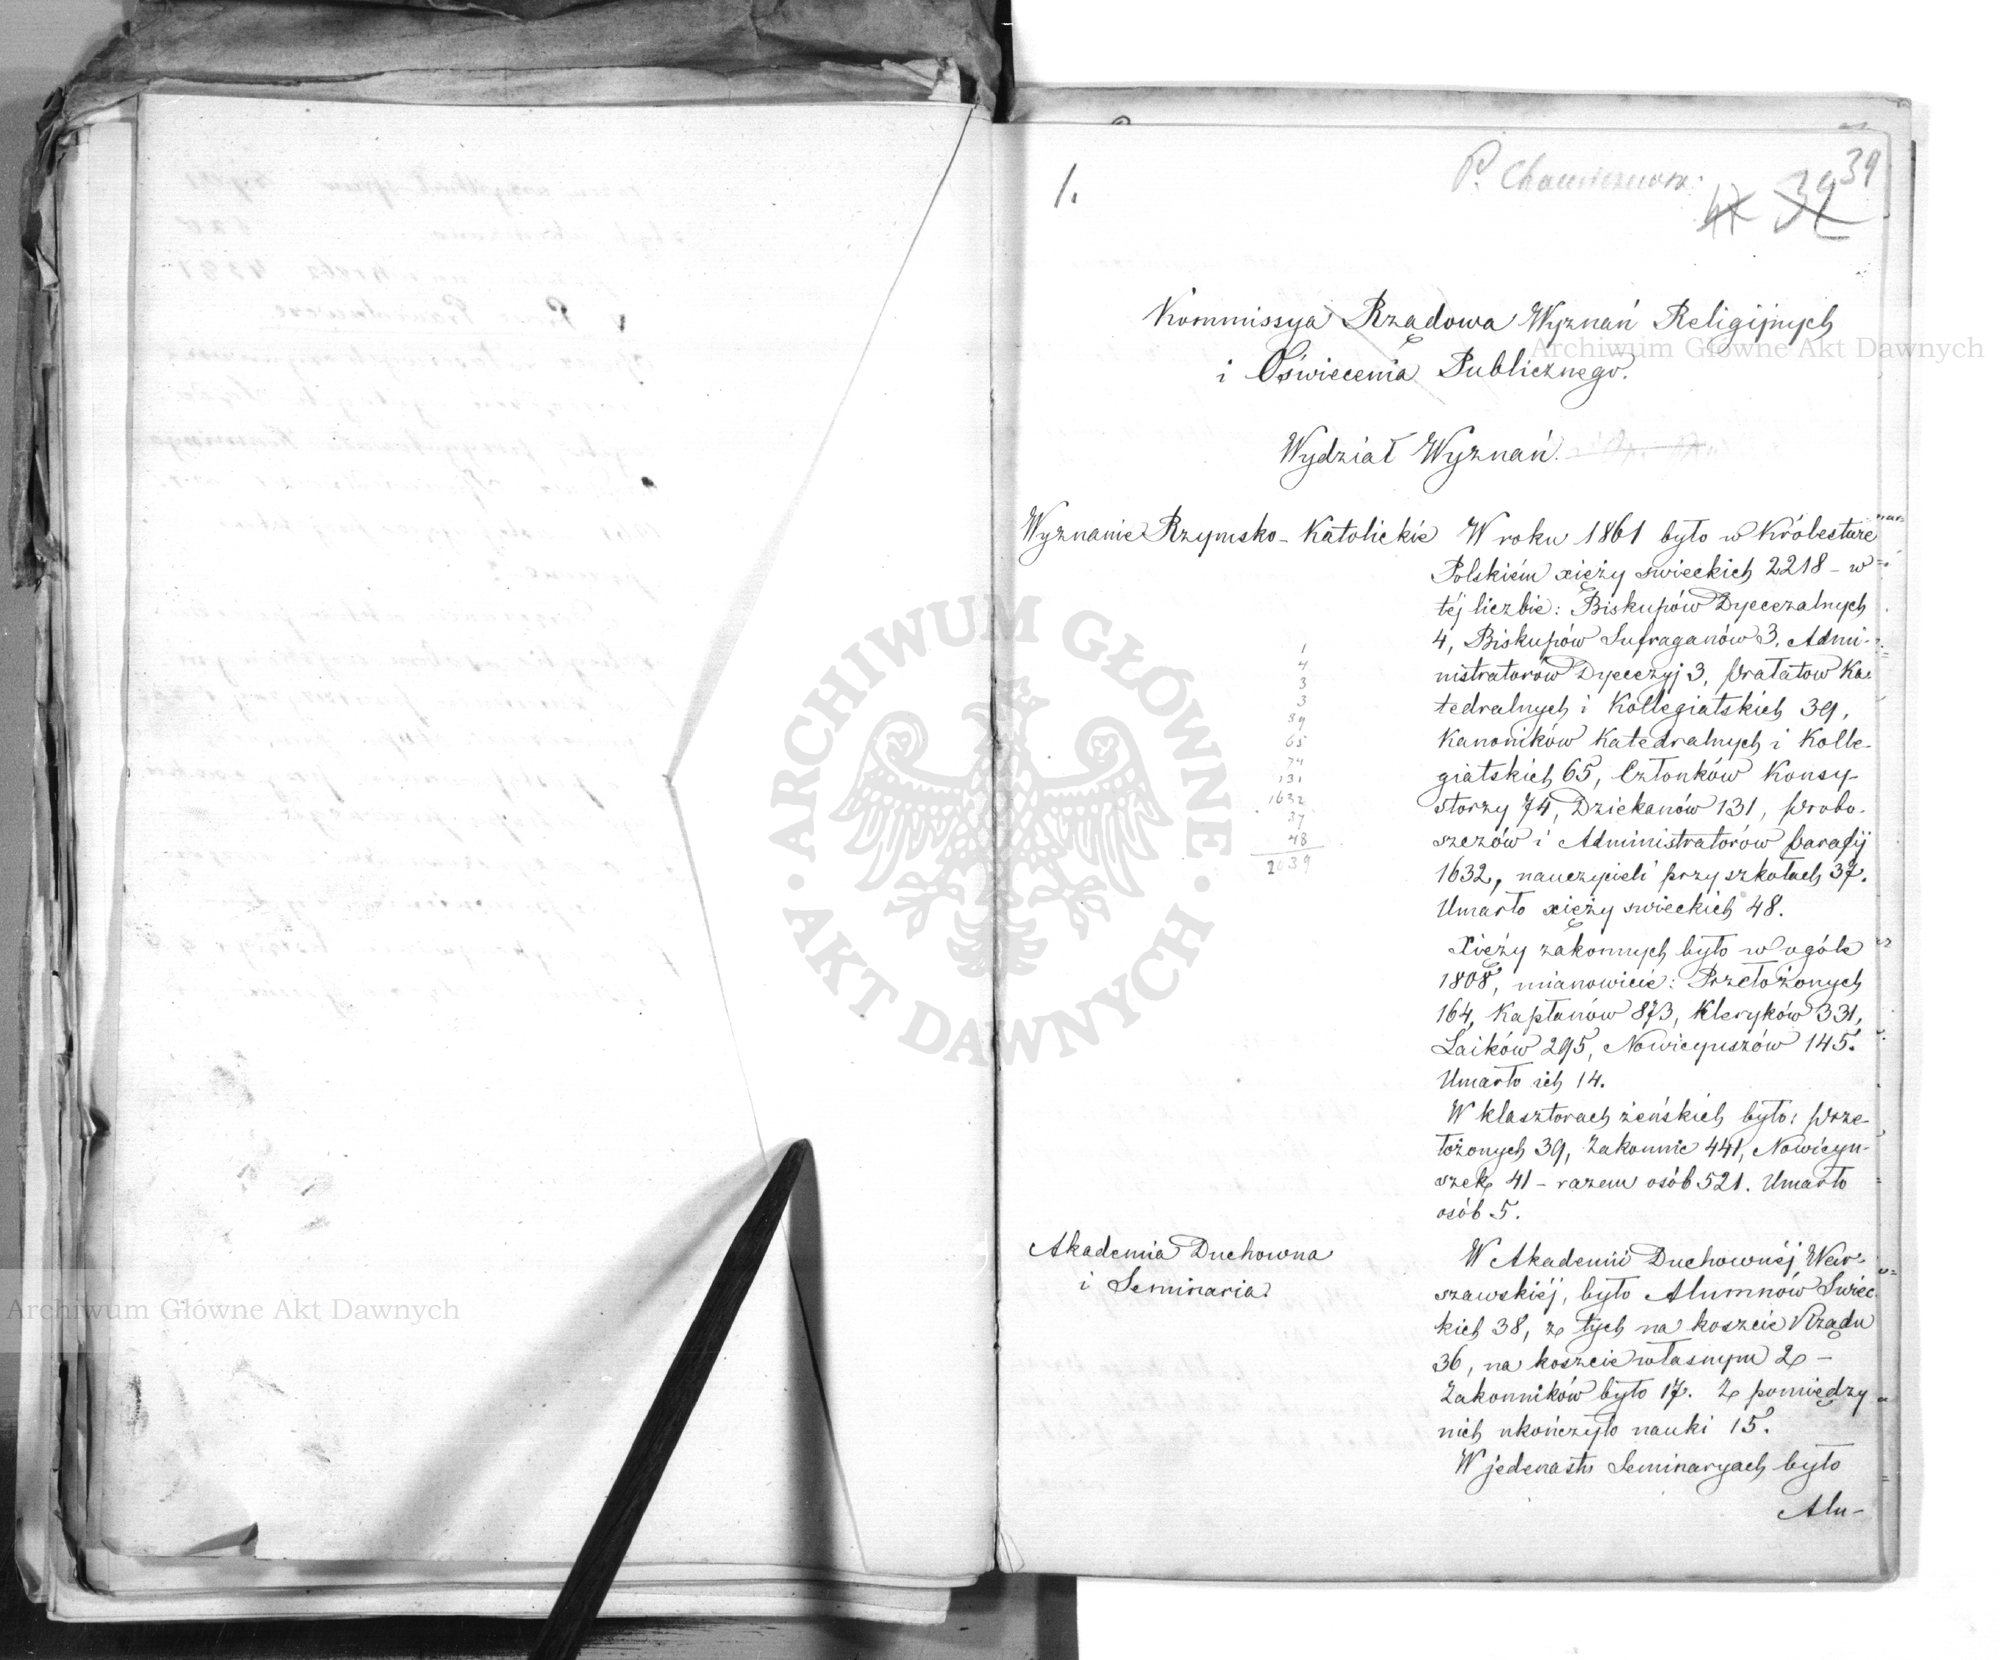 1.
P.
39
Kommissya Rządowa Wyznań Religijnych
i Oświecenia Publicznego.
Wydział Wyznań.
Wyznanie Rzymsko-Katolickie
W roku 1861 było w Królestwie
Polskiém xięży swieckich 2218 - w
téj liczbie: Biskupów Dyecezalnych
4, Biskupów Sufraganów 3, Admi-
nistratorów Dyecezyj 3, Prałatow Ka-
tedralnych i Kollegiatskich 39,
Kanoników Katedralnych i Kolle-
giatskich 65, Członków Konsy-
storzy 74, Dziekanów 131, Probo-
szczów i Administratorów parafij
1632, nauczycieli przy szkołach 37.
Umarło xięży swieckich 48.
1
4
3
3
39
65
74
131
1632
37
48
2039
Xięży zakonnych było w ogóle
1808, mianowicie: Przełożonych
164, Kapłanów 873, Kleryków 331,
Laików 295, Nowicyuszów 145.
Umarło ich 14.
W klasztorach żeńskich było: Prze-
łożonych 39, Zakonnic 441, Nowicyu-
szek 41 - razem osób 521. Umarło
osób 5.
Akademia Duchowna
i Seminaria.
W Akademii Duchownéj War-
szawskiéj, było Alumnów Swiec-
kich 38, z tych na koszcie Rządu
36, na koszcie własnym 2 -
Zakonników było 17. Z pomiędzy
nich ukończyło nauki 15.
W jedenastu Seminaryach było
Alu-
Archiwum Główne Akt Dawnych
Archiwum Główne Akt Dawnych
ARCHIWUM GŁÓWNE
AKT DAWNYCH